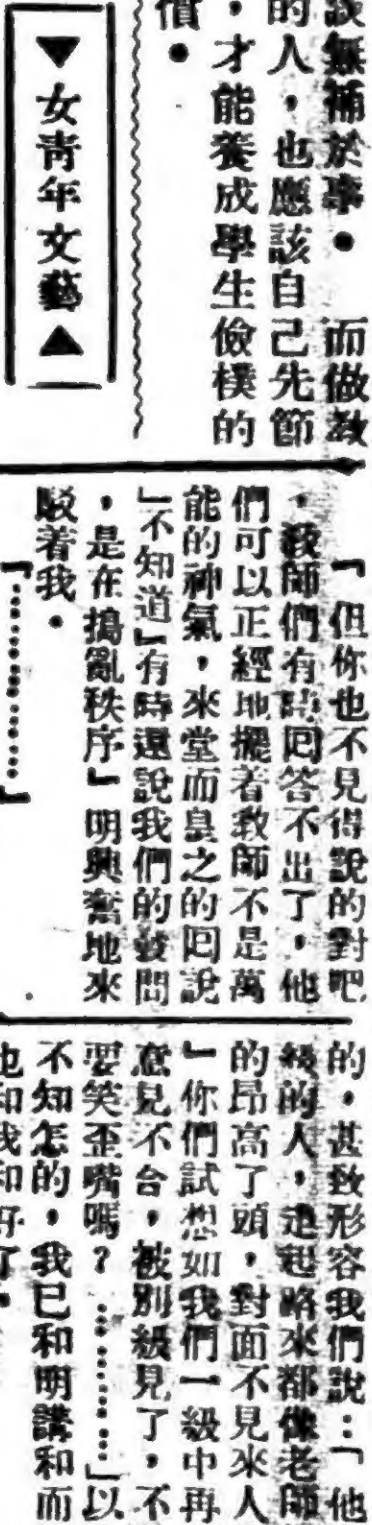 談無補於事●　而做教
的人，也應該自己先節
，才能養成學生儉樸的
價●
▼女青年文藝▲
『但你也不見得說的對吧
，教師們有時回答不出了，他
們可以正經地擺着教師不是萬
能的神氣，來堂而皇之的回說
」不知道」有時還說我們的發問
，是在搗亂秩序」明興奮地來
駁着我●
『…………』
的，甚致形容我們說：「他
級的人，走起路來都像老師
的昂高了頭，對面不見來人
」你們試想如我們一級中再
意見不合，被別級見了，不
要笑歪嘴嗎？…………」以
不知怎的，我已和明講和而
也和我和好了●